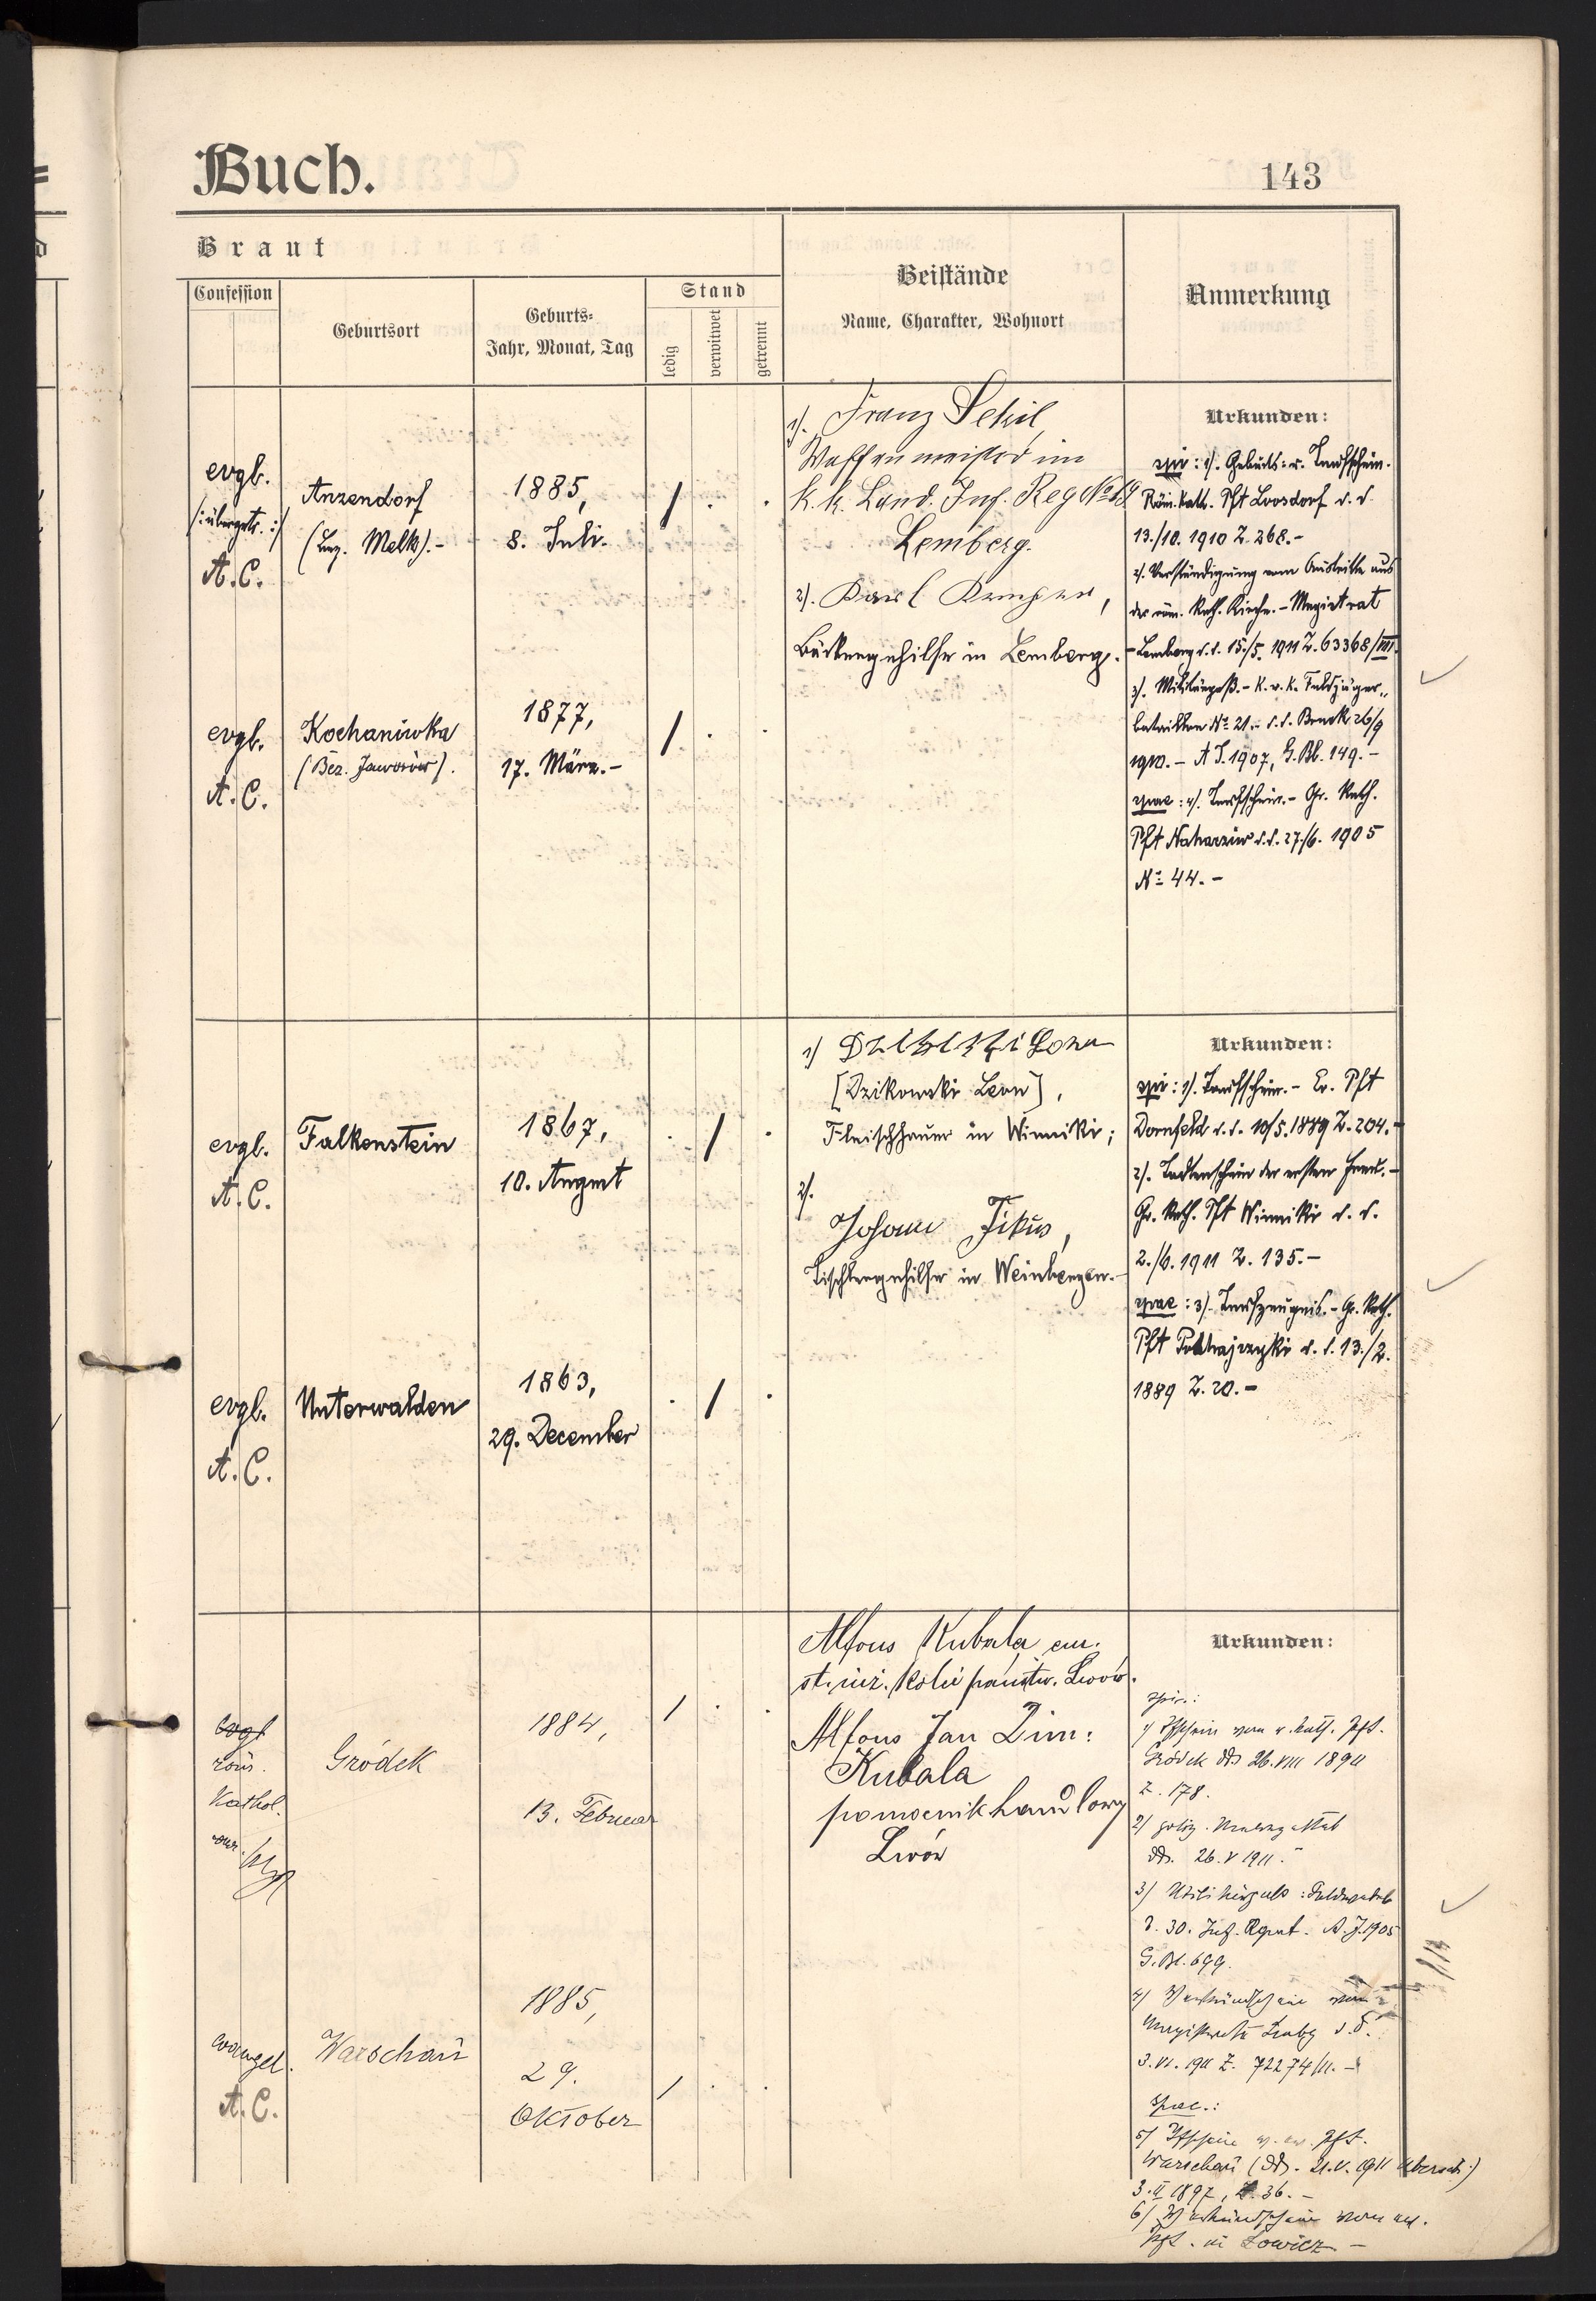 Buch.
143
Braut
Confession
Geburtsort
Geburts-
Jahr, Monat, Tag
Stand
ledig
verwitwet
getrennt
Beistände
Name, Charakter, Wohnort
Anmerkung
evgl.
/:übergetr.:/
A. C.
Anzendorf
(Bez. Melk).-
1885,
8. Juli.
1). Franz
Waffenmeister im
k. k. Land. Inf. Reg No 19
Lemberg.
2). Karl
Bäckergehilfe in Lemberg.
Urkunden:
spir: 1). Geburts- u. Taufschein.
Röm. kath. Pft Loosdorf d. d.
13./10. 1910 Z. 268.-
2). Verständigung vom Austritte aus
der röm. kath. Kirche.- Magistrat
Lemberg d. d. 15./5. 1911 Z. 63368/III.
3). Militärpaß.- K. u. k. Feldjäger-
bataillon No 21.- d. d. Bruck 26/9
1910.- A. J. 1907, G. Bl. 149.-
spae: 4). Taufschein.- Gr. kath.
Pft d. d. 27./6. 1905
No 44.-
evgl.
A. C.
Kochaniwka
(Bez. Jaworów).
1877,
17. März.-
1)
[Dzikowski Leon],
Fleischhauer in Winniki;
2).
Johann Fikus,
Tischlergehilfe in Weinbergen.-
Urkunden:
spir: 1). Taufschein.- Ev. Pft
Dornfeld d. d. 10/5. 1889 Z. 204.-
2). Todtenschein der ersten Frau.-
Gr. kath. Pft Winniki d. d.
2./6. 1911 Z. 135.-
spae: 3). Taufzeugnis.- Gr. kath.
Pft d. d. 13./2.
1889 Z. 20.-
evgl.
A. C.
Falkenstein
1867,
10. August
evgl.
A. C.
Unterwalden
1863,
29. December
Alfons Kubala em.
st. inż. kolei państw. Lwów.
Alfons Jan Zim:
Kubala
pomocnik handlowy
Lwów
Urkunden:
spir.:
1) Tfschein vom r. kath. Pft.
Gródek dd 26. VIII 1894
Z. 178.
2)
dd. 26. V 1911.
3) Militärpass:
d. 30. Inf. Rgmt. A. J. 1905
G. Bl. 699.
4) Verkündschein vom
Magistrate Lmbg d. d.
3. VI. 1911 Z. 72274/II.-
spae.:
5) Tfschein v. ev. Pft.
Warschau (dd. 21. V. 1911 übersetz:)
3. II 1897, Z. 36.-
6) Verkündschein vom
Pft. in Łowicz-
evgl
röm.
Kathol.
Gródek
1884,
13. Februar
evangel.
A. C.
Warschau
1885,
29.
Oktober